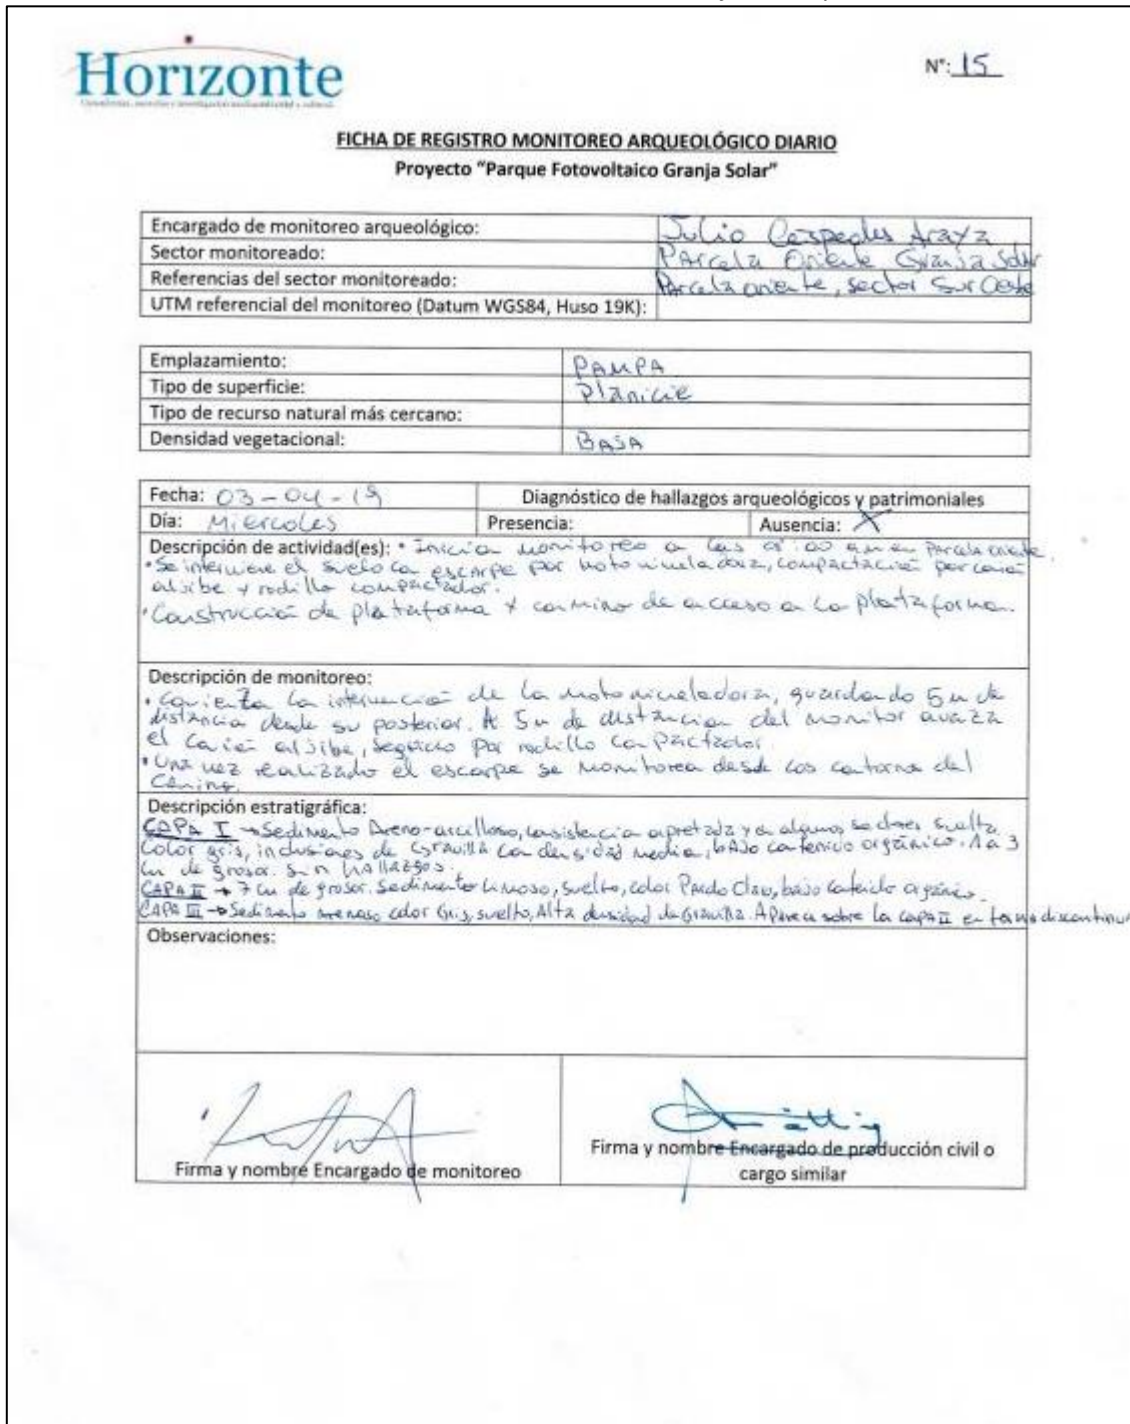 Horizonte
N°: 15
FICHA DE REGISTRO MONITOREO ARQUEOLÓGICO DIARIO
Proyecto "Parque Fotovoltaico Granja Solar"
Encargado de monitoreo arqueológico: Julio Cespedes Araya
Sector monitoreado: Parcela Oriente Granja Solar
Referencias del sector monitoreado: Parcela oriente, sector Sur Oeste
UTM referencial del monitoreo (Datum WGS84, Huso 19K):
Emplazamiento: PAMPA
Tipo de superficie: Planicie
Tipo de recurso natural más cercano:
Densidad vegetacional: BAJA
Fecha: 03-04-19 Diagnóstico de hallazgos arqueológicos y patrimoniales
Día: Miercoles Presencia: Ausencia: X
Descripción de actividad(es): • Inicia monitoreo a las :00 am en Parcela oriente.
• Se interviene el suelo con escarpe por motoniveladora, compactación por camión
aljibe y rodillo compactador.
• Construcción de plataforma y camino de acceso a la plataforma.
Descripción de monitoreo:
• Comienza la intervención de la motoniveladora, guardando 5 m de
distancia desde su posterior. A 5 m de distancia del monitor avanza
el camión aljibe, seguido por rodillo compactador.
• Una vez realizado el escarpe se monitorea desde los contornos del
Camino.
Descripción estratigráfica:
CAPA I → Sedimento Areno-arcilloso, consistencia apretada y en algunos sectores suelta
Color gris, inclusiones de Gravilla con densidad media, bajo contenido orgánico. 1 a 3
cm de grosor. Sin hallazgos.
CAPA II → 7 cm de grosor. Sedimento Limoso, suelto, color Pardo Claro, bajo contenido orgánico.
CAPA III → Sedimento arenoso color Gris, suelto, Alta densidad de Gravilla. Aparece sobre la capa II en forma discontinua
Observaciones:
Firma y nombre Encargado de monitoreo
Firma y nombre Encargado de producción civil o
cargo similar